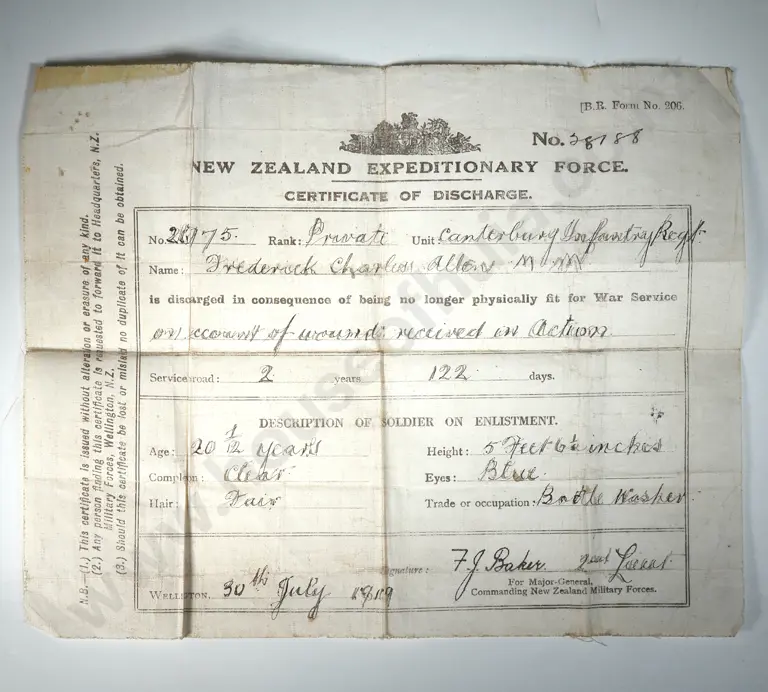 [B.R. Form No. 206.
No. 38188
NEW ZEALAND EXPEDITIONARY FORCE.
CERTIFICATE OF DISCHARGE.
No. Rank: Private Unit Canterbury Infantry Regt
Name: Frederick Charles Allen M M
is discarged in consequence of being no longer physically fit for War Service
on account of wounds received in Action
Service road: 2 years 122 days.
DESCRIPTION OF SOLDIER ON ENLISTMENT.
Age: 20 1/12 years Height: 5 feet 6½ inches
Compleon: Clear Eyes: Blue
Hair: Fair Trade or occupation: Bottle Washer
Signature: F. J. Baker 2nd Lieut.
For Major-General,
Commanding New Zealand Military Forces.
WELLIGTON, 30th July 1919
N.B.—(1.) This certificate is issued without alteration or erasure of any kind.
(2.) Any person finding this certificate is requested to forward it to Headquarters, N.Z.
Military Forces, Wellington, N.Z.
(3.) Should this certificate be lost or mislaid no duplicate of it can be obtained.